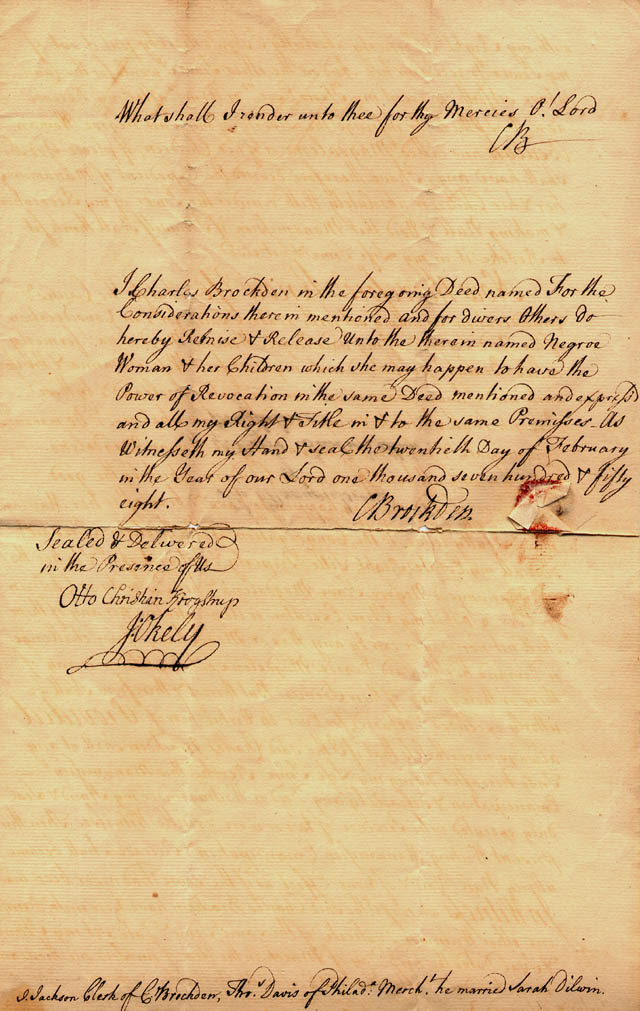 What shall I render unto thee for thy Mercies O! Lord
CB
I Charles Brockden in the foregoing Deed named For the
Considerations therein mentioned and for divers Others do
hereby Remise & Release Unto the therein named Negroe
Woman & her Children which she may happen to have the
Power of Revocation in the same Deed mentioned and express'd
and all my Right & Title in & to the same Premisses As
Witnesseth my Hand & seal the twentieth Day of February
in the Year of our Lord one thousand seven hundred & fifty
eight.
CBrockden.
Sealed & Delivered
in the Presence of Us
Otto Christian Krogstrup
J: Okely
J. Jackson Clerk of C. Brockden, Thos. Davis of Philada. Mercht. he married Sarah Dilwin.